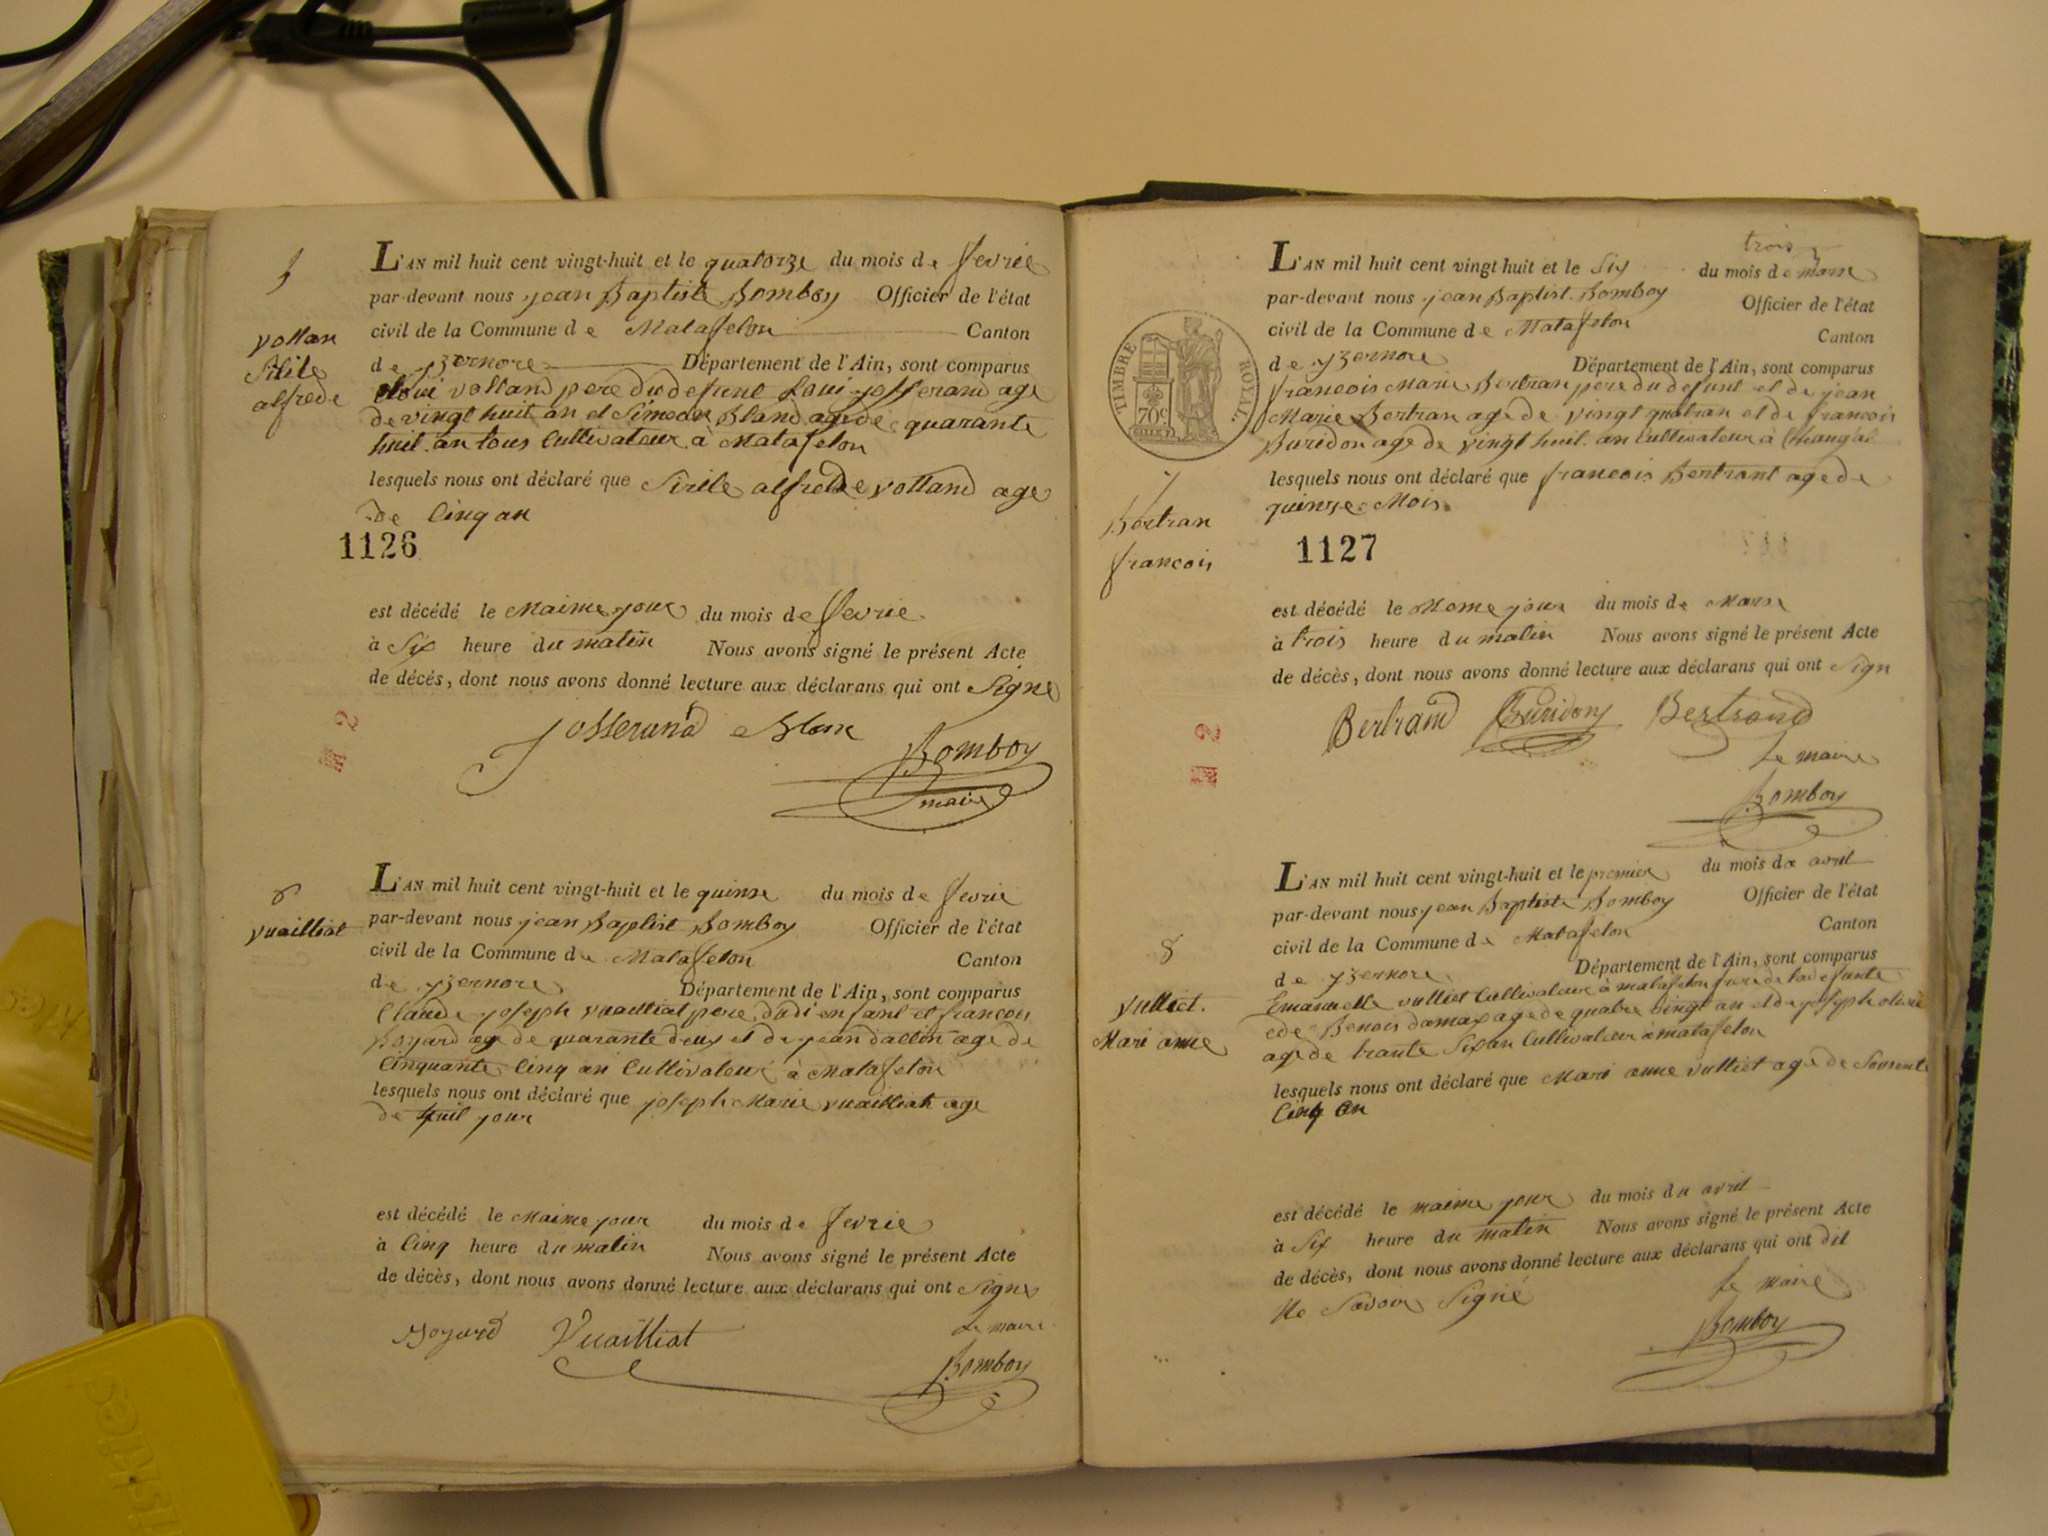 5
vollan
Silile
alfrede
L'AN mil huit cent vingt-huit et le quatorze du mois de fevrie
par-devant nous jean Baptiste Bomboy Officier de l'état
civil de la Commune de Matafelon Canton
de yzernore Département de l'Ain, sont comparus
volland pere du defunt Loui josserand age
de vingt huit an et Simon Bland age de quarante
huit an tous Cultivateur à Matafelon
lesquels nous ont déclaré que Sirile alfrede volland age
de Cinq an
1126
est décédé le Maime jour du mois de fevrie
à Six heure du matin Nous avons signé le présent Acte
de décès, dont nous avons donné lecture aux déclarans qui ont Signé
M 2
Josserand Blanc
Bomboy
maire
6
vuailliat
L'AN mil huit cent vingt-huit et le quinse du mois de fevrie
par-devant nous jean Baptist Bomboy Officier de l'état
civil de la Commune de Matafelon Canton
de yzernore Département de l'Ain, sont comparus
Claude joseph vuailliat pere dudi enfant et francois
Boyard age de quarante deux et de jean dallon age de
Cinquante Cinq an Cultivateur à Matafelon
lesquels nous ont déclaré que joseph Marie vuailliat age
de huit jour
est décédé le Maime jour du mois de fevrie
à Cinq heure du matin Nous avons signé le présent Acte
de décès, dont nous avons donné lecture aux déclarans qui ont Signé
Boyard Vuailliat
Le maire
Bomboy
trois
L'AN mil huit cent vingt huit et le Six du mois de mars
par-devant nous jean Baptist Bomboy Officier de l'état
civil de la Commune de Matafelon Canton
de yzernore Département de l'Ain, sont comparus
francois Marie Bertran pere du defunt et de jean
Marie Bertran age de vingt quatran et de francois
Buridon age de vingt huit an Cultivateur à
lesquels nous ont déclaré que francois Bertrant age de
quinze Mois
TIMBRE ROYAL
70c
7
Bertran
francois
1127
est décédé le Mome jour du mois de Mars
à trois heure du matin Nous avons signé le présent Acte
de décès, dont nous avons donné lecture aux déclarans qui ont Sign
M 2
Bertrand Buridon Bertrand
Le maire
Bomboy
8
vulliet
Mari anne
L'AN mil huit cent vingt-huit et le premier du mois de avril
par-devant nous jean Baptiste Bomboy Officier de l'état
civil de la Commune de Matafelon Canton
de yzernore Département de l'Ain, sont comparus
Emanuelle vulliet Cultivateur à matafelon de la defunte
Benois damas age de quatre vingt an et de joseph
age de trante Six an Cultivateur a matafelon
lesquels nous ont déclaré que Mari anne vulliet age de Soisente
Cinq an
est décédé le maime jour du mois du avril
à Six heure du matin Nous avons signé le présent Acte
de décès, dont nous avons donné lecture aux déclarans qui ont dit
Ne Savoir Signé
Le maire
Bomboy